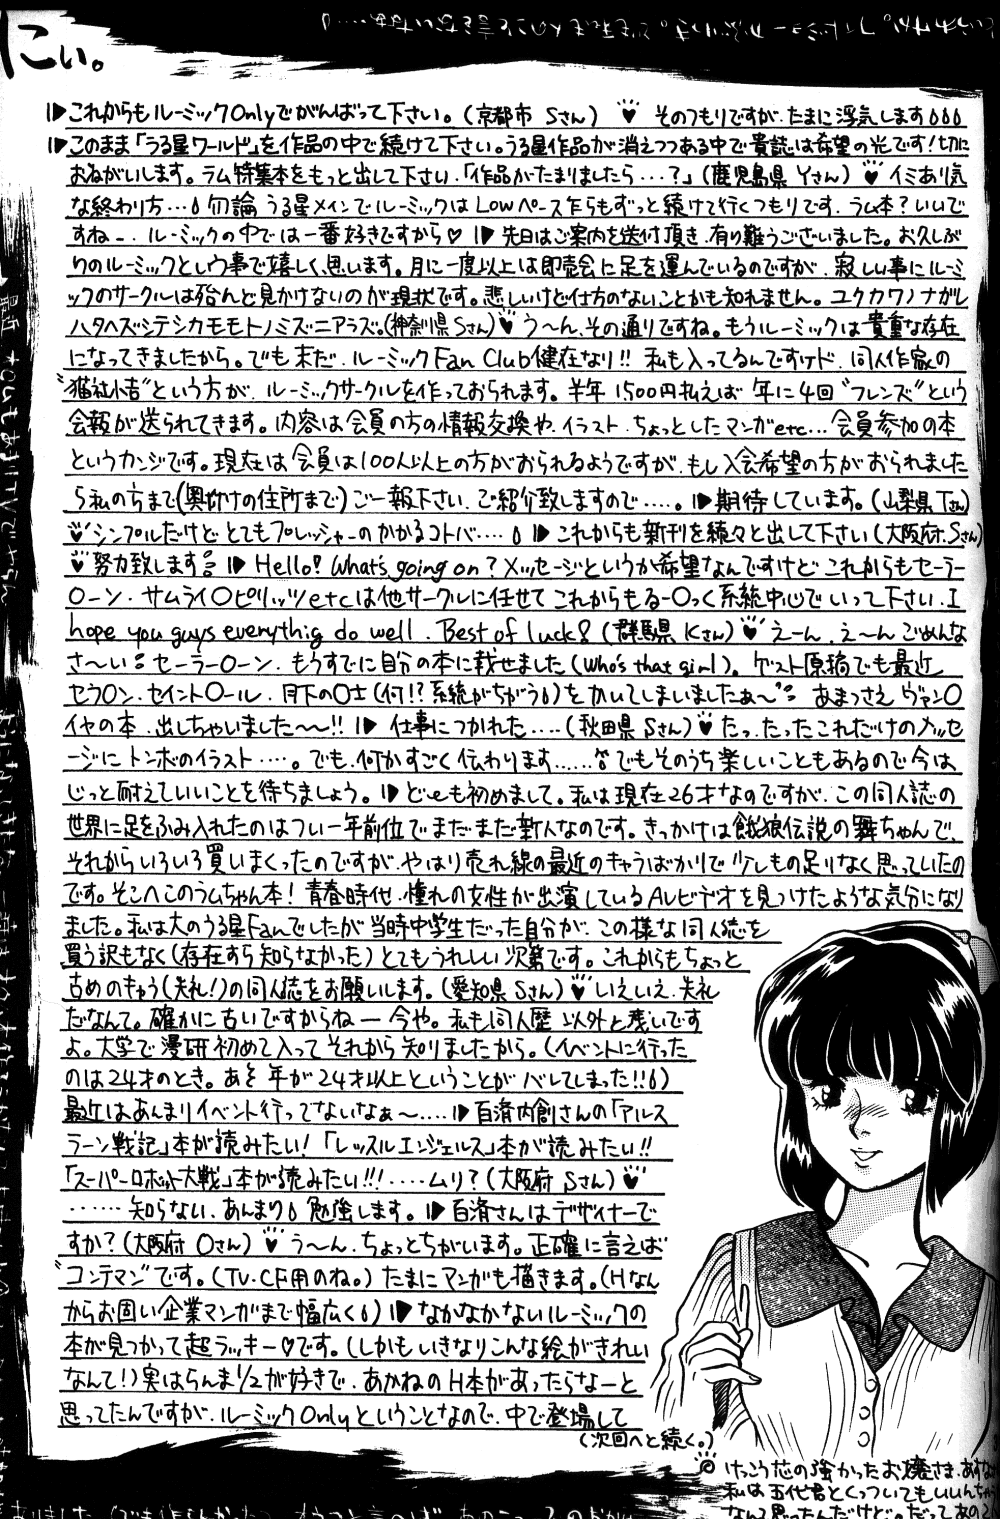 にい。
これからもルーミックOnlyでがんばって下さい。(京都市 Sさん) ♥ そのつもりですが、たまに浮気します
このまま「うる星ワールド」を作品の中で続けて下さい。うる星作品が消えつつある中で貴誌は希望の光です!切に
おねがいします。ラム特集本をもっと出して下さい、「作品がたまりましたら…?」(鹿児島県 Yさん) ♥ イミあり気
な終わり方… 勿論 うる星メインでルーミックはLowペース乍らもずっと続けて行くつもりです。ラム本?いいで
すねー。ルーミックの中では一番好きですから♡ 先日はご案内を送付頂き、有り難うございました。お久しぶ
りのルーミックという事で嬉しく思います。月に一度以上は即売会に足を運んでいるのですが、寂しい事にルーミ
ックのサークルは殆んど見かけないのが現状です。悲しいけど仕方のないことかも知れません。ユクカワノナガレ
ハタヘズシテシカモモトノミズニアラズ。(神奈川県Sさん) ♥ う〜ん、その通りですね。もうルーミックは貴重な存在
になってきましたから。でも未だ、ルーミックFan Club健在なり!! 私も入ってるんですけド、同人作家の
という方が、ルーミックサークルを作っておられます。半年1500円払えば 年に4回 “フレンズ”という
会報が送られてきます。内容は会員の方の情報交換や、イラスト、ちょっとしたマンガetc… 会員参加の本
というカンジです。現在は会員は100人以上の方がおられるようですが、もし入会希望の方がおられました
ら私のうちまで(奥付けの住所まで)ご一報下さい、ご紹介致しますので……。 期待しています。(山梨県 Tさん)
♥ シンプルだけど とてもプレッシャーのかかるコトバ…… これからも新刊を続々と出して下さい(大阪府 Sさん)
♥ 努力致します Hello! What's going on? メッセージというか希望なんですけど これからもセーラー
〇ーン、サムライ〇ピリッツetcは他サークルに任せて これからもるー〇っく系統中心で いって下さい、I
hope you guys everythig do well. Best of luck! (群馬県 Kさん) ♥ えーん、え〜ん ごめんな
さ〜い セーラー〇ーン、もうすでに自分の本に載せました(Who's that girl)。ゲスト原稿でも最近
セラ〇ン、セイント〇ール、月下の〇士(何!?系統がちがう)をかいてしまいましたぁ〜 あまつさえ ヴァン〇
イヤの本、出しちゃいました〜〜!! 仕事につかれた……(秋田県 Sさん) ♥ たっ、たったこれだけのメッセ
ージにトンボのイラスト……。でも、何かすごく伝わります…… でもそのうち楽しいこともあるので今は
じっと耐えていいことを待ちましょう。 どーも初めまして。私は現在26才なのですが、この同人誌の
世界に足をふみ入れたのはつい一年前位でまだまだ新人なのです。きっかけは餓狼伝説の舞ちゃんで、
それからいろいろ買いまくったのですが、やはり売れ線の最近のキャラばかりで少しもの足りなく思っていたの
です。そこへこのラムちゃん本! 青春時代、憧れの女性が出演しているAVビデオを見つけたような気分になり
ました。私は大のうる星Fanでしたが 当時中学生だった自分が、この様な同人誌を
買う訳もなく(存在すら知らなかった)とてもうれしい次第です。これからもちょっと
古めのキャラ(失礼!)の同人誌をお願いします。(愛知県 Sさん) ♥ いえいえ、失礼
だなんて。確かに古いですからね― 今や。私も同人歴 以外と浅いです
よ。大学で漫研初めて入って それから知りましたから。(イベントに行った
のは24才のとき。あそ 年が24才以上ということが バレてしまった!!)
最近はあんまりイベント行ってないなぁ〜…… 百済内創さんの「アルス
ラーン戦記」本が読みたい! 「レッスルエンジェルス」本が読みたい!!
「スーパーロボット大戦」本が読みたい!!! ……ムリ?(大阪府 Sさん) ♥
……知らない、あんまり 勉強します。 百済さんはデザイナーで
すか?(大阪府 Oさん) ♥ う〜ん、ちょっとちがいます。正確に言えば
“コンテマン”です。(TV-CF用のね。)たまにマンガも描きます。(Hなん
からお固い企業マンガまで幅広く) なかなかないルーミックの
本が見つかって超ラッキー♡です。(しかもいきなりこんな絵がきれい
なんて!)実はらんま1/2が好きで、あかねのH本があったらなーと
思ってたんですが、ルーミックOnlyということなので、中で登場して
(次回へと続く。)
けっこう芯の強かったお嬢さま、
私は五代君とくっついてもいいんちゃう
なんて思ったんだけど。だって